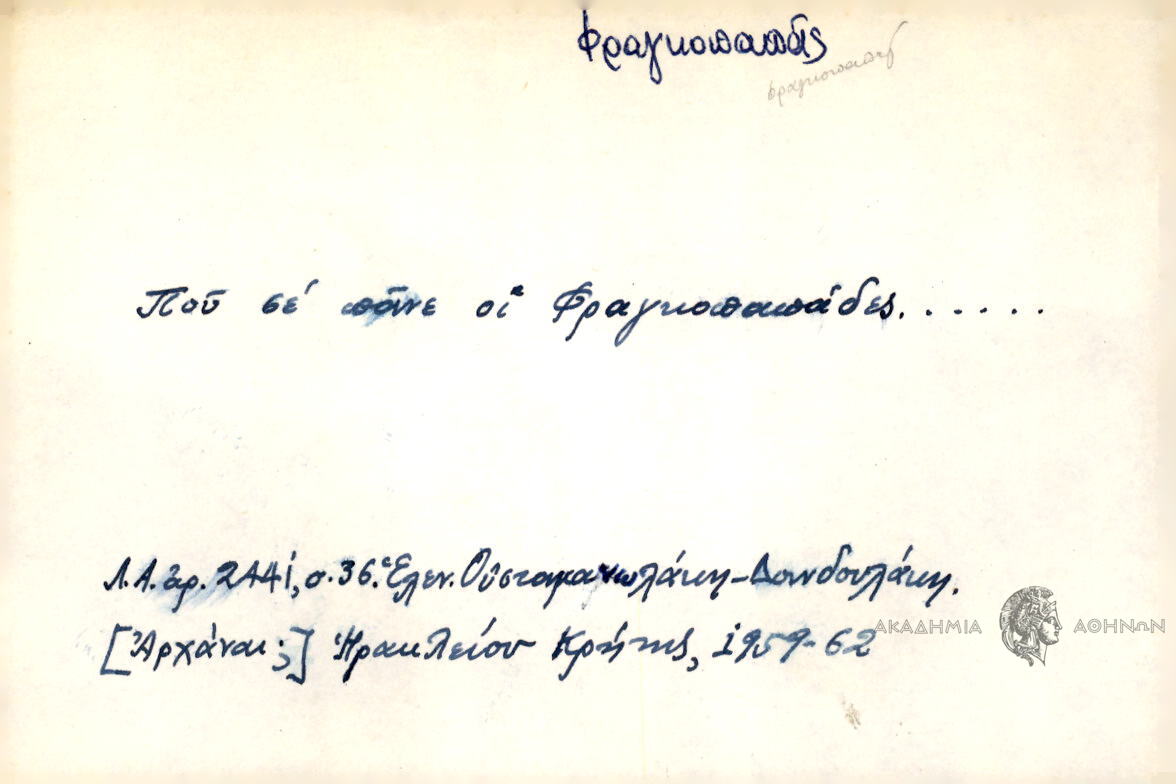 Φραγκοπαπᾶς
φραγκοπαπᾶ
Ποῦ σέ πᾶνε οἱ Φραγκοπαπάδες......
Λ.Α. ἀρ. 2441, σ. 36. Ἑλεν. Οὐσταμανωλάκη-Δανδουλάκη.
[Ἀρχάναι;] Ἡρακλείου Κρήτης, 1959-62
ΑΚΑΔΗΜΙΑ ΑΘΗΝΩΝ